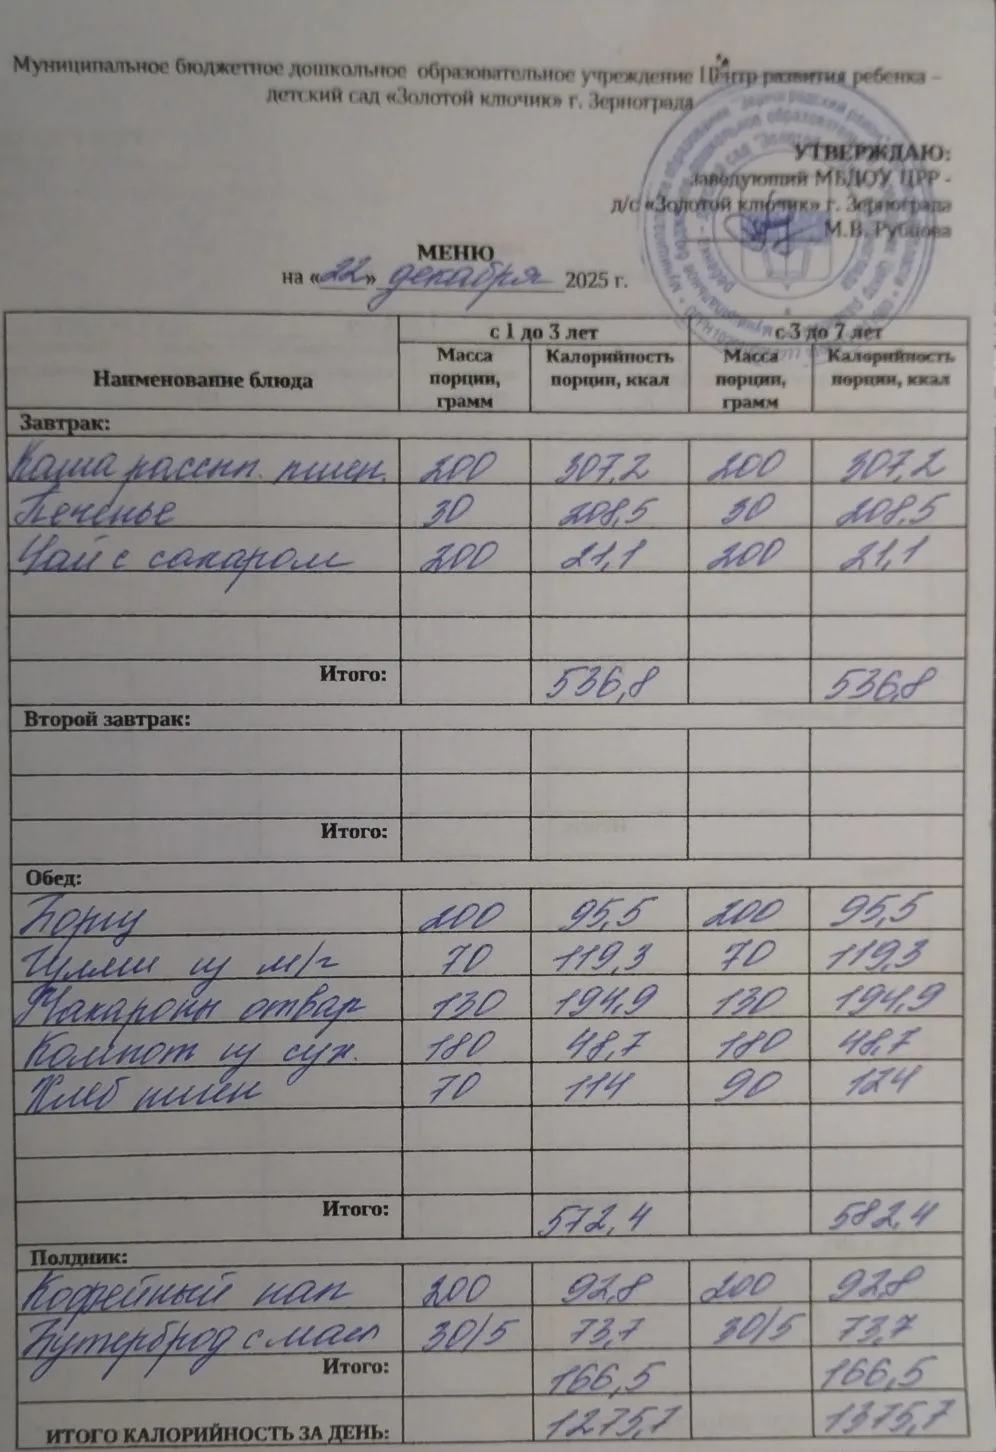 Муниципальное бюджетное дошкольное образовательное учреждение Центр развития ребенка –
детский сад «Золотой ключик» г. Зернограда
УТВЕРЖДАЮ:
заведующий МБДОУ ЦРР -
д/с «Золотой ключик» г. Зернограда
М.В. Рубцова
МЕНЮ
на «22» декабря 2025 г.
Наименование блюда с 1 до 3 лет с 3 до 7 лет
Масса порции, грамм Калорийность порции, ккал Масса порции, грамм Калорийность порции, ккал
Завтрак:
Каша рассып. пшен. 200 307,2 200 307,2
Печенье 30 208,5 30 208,5
Чай с сахаром 200 21,1 200 21,1
Итого: 536,8 536,8
Второй завтрак:
Итого:
Обед:
Борщ 200 95,5 200 95,5
Гуляш из м/г 70 119,3 70 119,3
Макароны отвар 130 194,9 130 194,9
Компот из сух. 180 48,7 180 48,7
Хлеб пшен 70 114 90 124
Итого: 572,4 582,4
Полдник:
Кофейный нап 200 92,8 200 92,8
Бутерброд с масл 30/5 73,7 30/5 73,7
Итого: 166,5 166,5
ИТОГО КАЛОРИЙНОСТЬ ЗА ДЕНЬ: 1275,7 1375,7